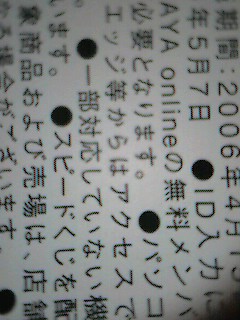 期間:2006年4月15
年5月7日 ●ID入力に
AYA onlineの無料メンバ
必要となります。 ●パソコ
エッジ等からはアクセスで
●一部対応していない機
います。 ●スピードくじを配
象商品および売場は、店舗
る場合がございます。 ●